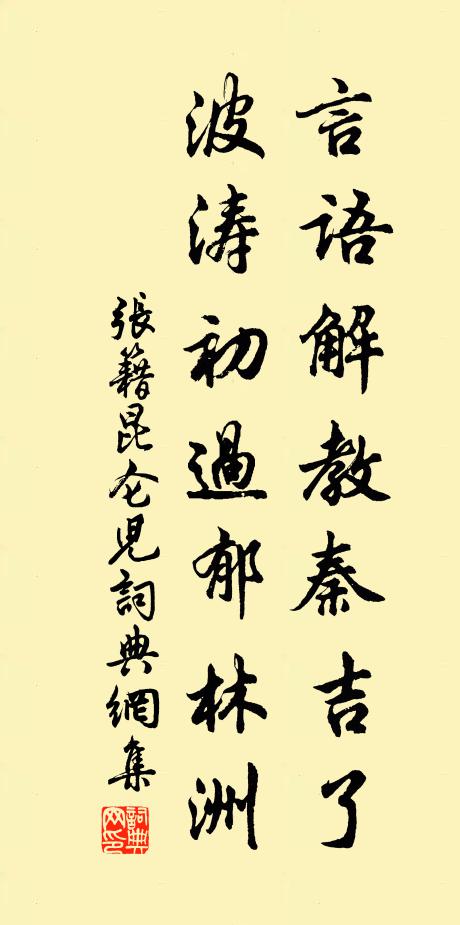 言語解教秦吉了
波涛初過郁林洲
張籍昆仑兒詞典網集
詞典
网印